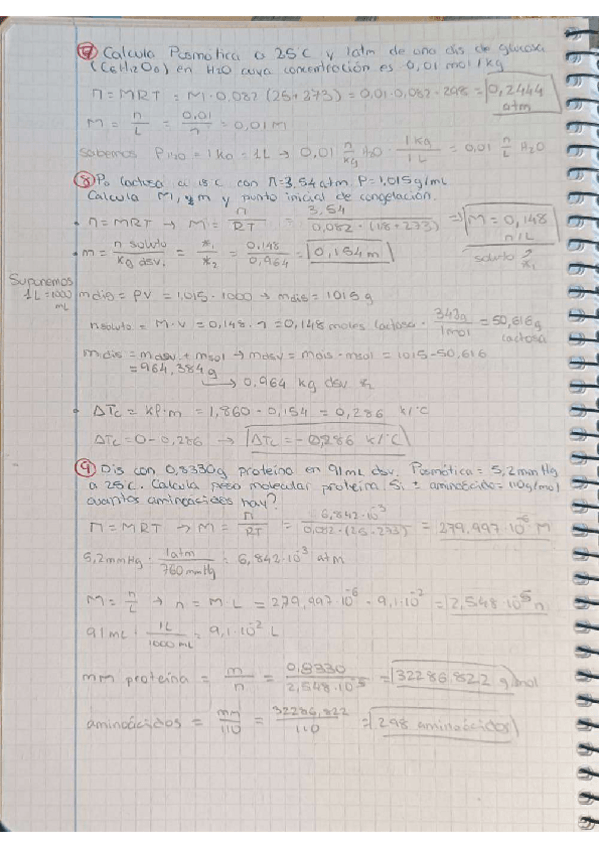 ⑦ Calcula Posmótica a 25°C y 1atm de una dis de glucosa
(C6H12O6) en H2O cuya concentración es 0,01 mol/kg
π = MRT = M·0,082 (25+273) = 0,01·0,082·298 = 0,2444 atm
M = n/L = 0,01/1 = 0,01 M
sabemos ρ H2O = 1 kg = 1L → 0,01 n/kg H2O · 1kg/1L = 0,01 n/L H2O
⑧ lactosa a 18°C con π = 3,54 atm. ρ = 1,015 g/mL
Calcula M, m y punto inicial de congelación.
· π = MRT → M = π/RT = 3,54/0,082·(18+273) ⇒ M = 0,148 n/L
soluto *1
· m = n soluto/kg dsv. = *1/*2 = 0,148/0,964 = 0,154 m
Suponemos 1L = 1000 mL
mdis = ρV = 1,015·1000 → mdis = 1015 g
nsoluto = M·V = 0,148·1 = 0,148 moles lactosa · 342g/1mol = 50,616 g lactosa
mdis = mdsv + msol → mdsv = mdis - msol = 1015 - 50,616
= 964,384 g
→ 0,964 kg dsv *2
· ΔTc = Kf·m = 1,860·0,154 = 0,286 K/°C
ΔTc = 0 - 0,286 → ΔTc = -0,286 K/°C
⑨ Dis con 0,8330g proteína en 91 mL dsv. Posmótica = 5,2 mm Hg
a 25°C. Calcula peso molecular proteína. Si ± aminoácido = 110 g/mol
cuantos aminoácidos hay?
π = MRT → M = π/RT = 6,842·10⁻³/0,082·(25+273) = 279,997·10⁻⁶ M
5,2 mmHg · 1atm/760 mmHg = 6,842·10⁻³ atm
M = n/L → n = M·L = 279,997·10⁻⁶ · 9,1·10⁻² = 2,548·10⁻⁵ n
91 mL · 1L/1000 mL = 9,1·10⁻² L
mm proteína = m/n = 0,8330/2,548·10⁻⁵ = 32286,822 g/mol
aminoácidos = mm/110 = 32286,822/110 = 298 aminoácidos